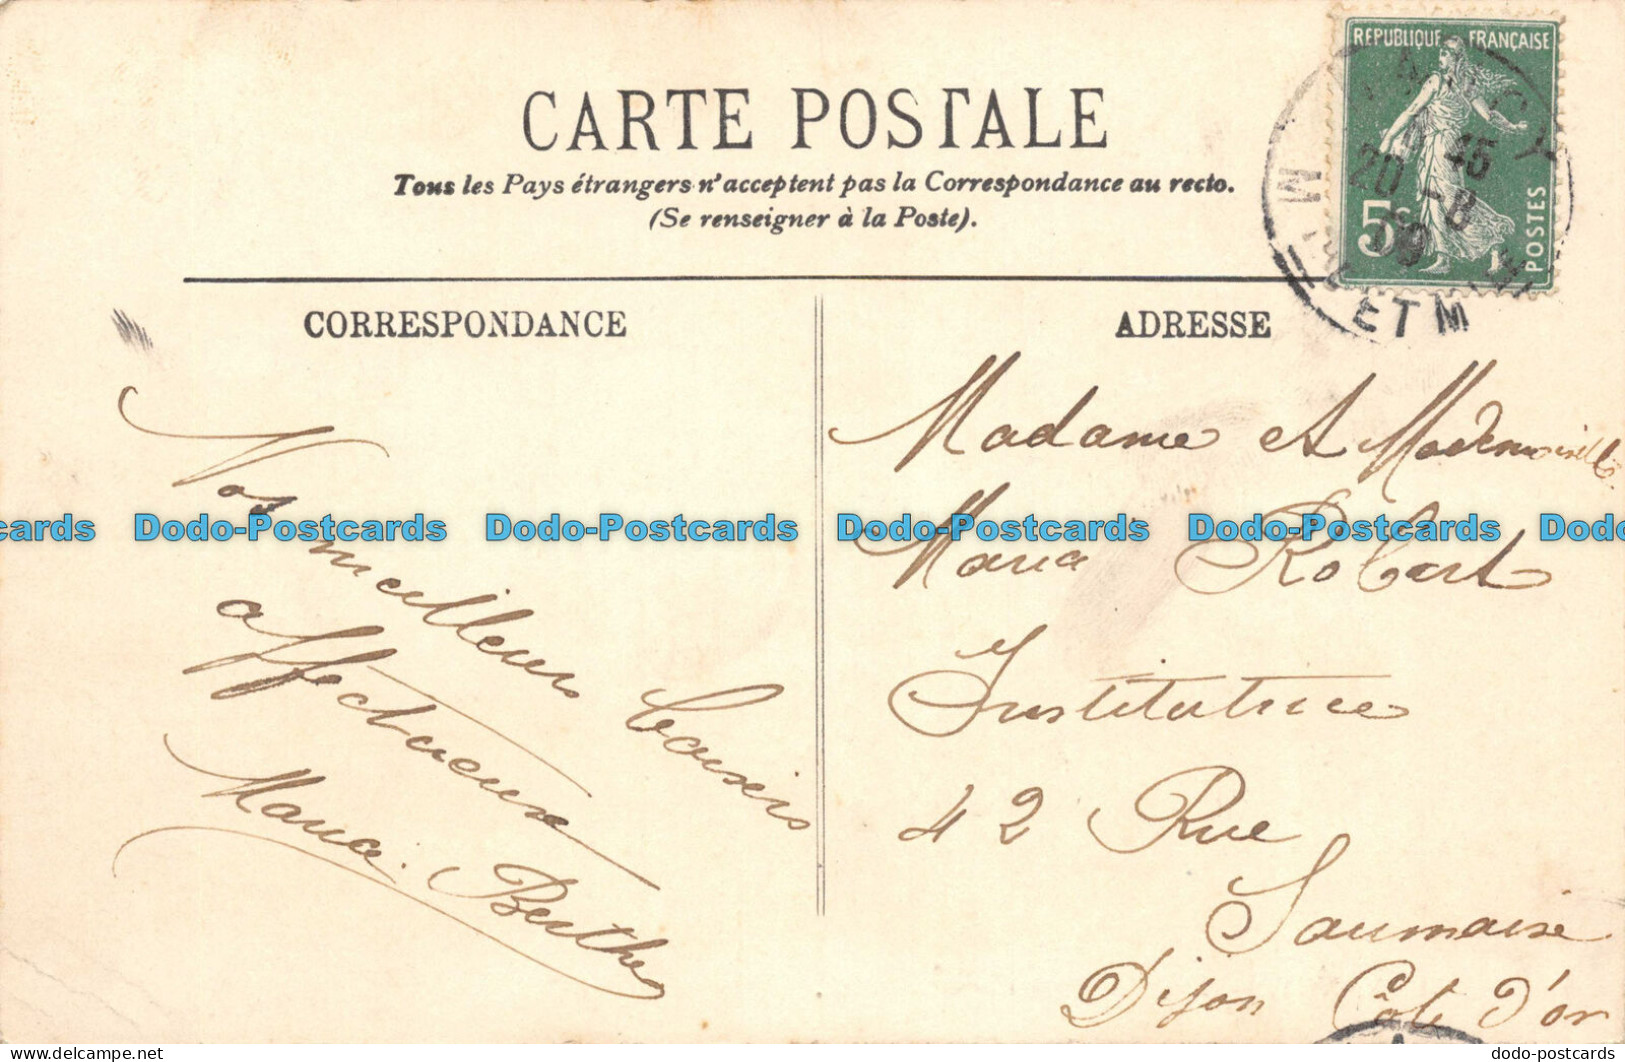 CARTE POSTALE
Tous les Pays étrangers n'acceptent pas la Correspondance au recto.
(Se renseigner à la Poste).
REPUBLIQUE FRANÇAISE
5c
POSTES
NANCY
45
20 -8
09
ET M
CORRESPONDANCE
Nos meilleurs baisers
affectueux
Maria. Berthe
ADRESSE
Madame et Mademoiselle
Maria Robert
Institutrice
42 Rue
Saumaise
Dijon Côte d'or
Dodo-Postcards Dodo-Postcards Dodo-Postcards Dodo-Postcards
dodo-postcards